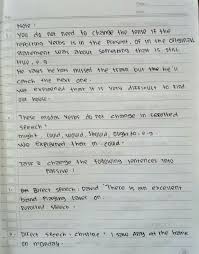 Note :
1. You do not need to change the tense if the
reporting verbs is in the present, of in the original
statement was about something that is still
true, e.g
He says he has missed the train but the he'll
catch the next one.
We explained that it is very difficult to find
our house.
These modal verbs do not change in reported
speech :
might, could, would, should, ought to, e.g
We explained that in could.
Task 2 change the following sentences into
passive !
Direct speech : David "There is an excellent
band playing later on
Reported speech :
Direct speech : Christine " I saw Amy at the bank
on monday.